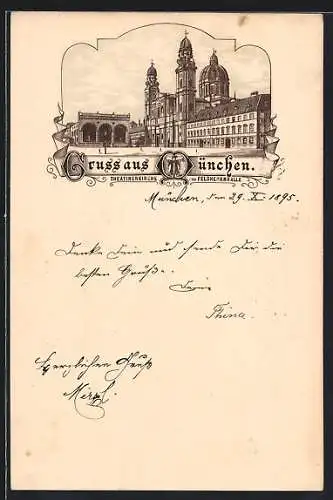 Gruss aus München.
THEATINERKIRCHE u. FELDHERRNHALLE
München, den 29. XII 1895.
Denke Dein und sende Dir die
besten Grüße.
Deine
Thina.
Herzlichen Gruß